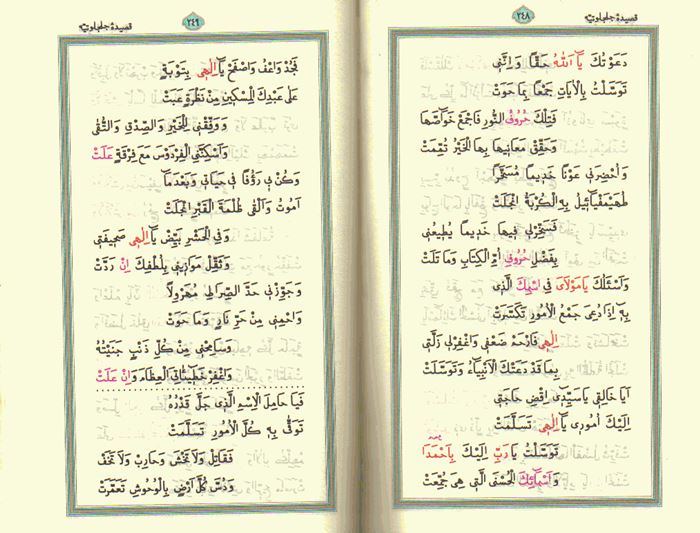 قصيدهٔ جلجلوتيه
٢٤٨
دَعَوْتُكَ يَا اَللّٰهُ حَقًّا وَاِنَّنِى
تَوَسَّلْتُ بِالْاٰيَاتِ جَمْعًا بِمَا حَوَتْ
فَتِلْكَ حُرُوفُ النُّورِ فَاجْمَعْ خَوَاصَّهَا
وَحَقِّقْ مَعَانِيهَا بِهَا الْخَيْرُ تُمِّمَتْ
وَاَحْضِرْنِى عَوْنًا خَدِيمًا مُسَخَّرًا
طُهَيْمَفْيَائِيلُ بِهِ الْكُرْبَةُ انْجَلَتْ
فَسَخِّرْلِى فِيهَا خَدِيمًا يُطِيعُنِى
بِفَضْلِ حُرُوفِ اُمِّ الْكِتَابِ وَمَا تَلَتْ
وَاَسْئَلُكَ يَامَوْلَاىَ فِى اسْمِكَ الَّذِى
بِهِ اِذَا دُعِىَ جَمْعُ الْاُمُورِ تَيَسَّرَتْ
اِلٰهِى فَارْحَمْ ضَعْفِى وَاغْفِرْلِى زَلَّتِى
بِمَا قَدْ دَعَتْكَ الْاَنْبِيَاءُ وَتَوَسَّلَتْ
اَيَا خَالِقِى يَاسَيِّدِى اِقْضِ حَاجَتِى
اِلَيْكَ اُمُورِى يَا اِلٰهِى تَسَلَّمَتْ
تَوَسَّلْتُ يَا رَبِّ اِلَيْكَ بِاَحْمَدَا
وَاَسْمَائِكَ الْحُسْنَى الَّتِى هِىَ جُمِّعَتْ
قصيدهٔ جلجلوتيه
٢٤٩
فَجُدْ وَاعْفُ وَاصْفَحْ يَا اِلٰهِى بِتَوْبَةٍ
عَلٰى عَبْدِكَ الْمِسْكِينِ مِنْ نَظْرَةٍ عَبَتْ
وَوَفِّقْنِى لِلْخَيْرِ وَالصِّدْقِ وَالتُّقٰى
وَاَسْكِنَّنِى الْفِرْدَوْسَ مَعَ فِرْقَةٍ عَلَتْ
وَكُنْ بِى رَؤُفًا فِى حَيَاتِى وَبَعْدَمَا
اَمُوتُ وَاَلْقٰى ظُلْمَةَ الْقَبْرِ انْجَلَتْ
وَفِى الْحَشْرِ بَيِّضْ يَا اِلٰهِى صَحِيفَتِى
وَثَقِّلْ مَوَازِينِى بِلُطْفِكَ اِنْ رَدَّتْ
وَجَوِّزْنِى حَدَّ الصِّرَاطِ مُهَرْوِلًا
وَاحْمِنِى مِنْ حَرِّ نَارٍ وَمَا حَوَتْ
وَسَامِحْنِى مِنْ كُلِّ ذَنْبٍ جَنَيْتُهُ
وَاغْفِرْ خَطِيئَاتِىَ الْعِظَامَ وَاِنْ عَلَتْ
فَيَا حَامِلَ الْاِسْمِ الَّذِى جَلَّ قَدْرُهُ
تَوَقَّى بِهِ كُلَّ الْاُمُورِ تَسَلَّمَتْ
فَقَاتِلْ وَلَا تَخْشَ وَحَارِبْ وَلَا تَخَفْ
وَدُسْ كُلَّ اَرْضٍ بِالْوُحُوشِ تَعَمَّرَتْ